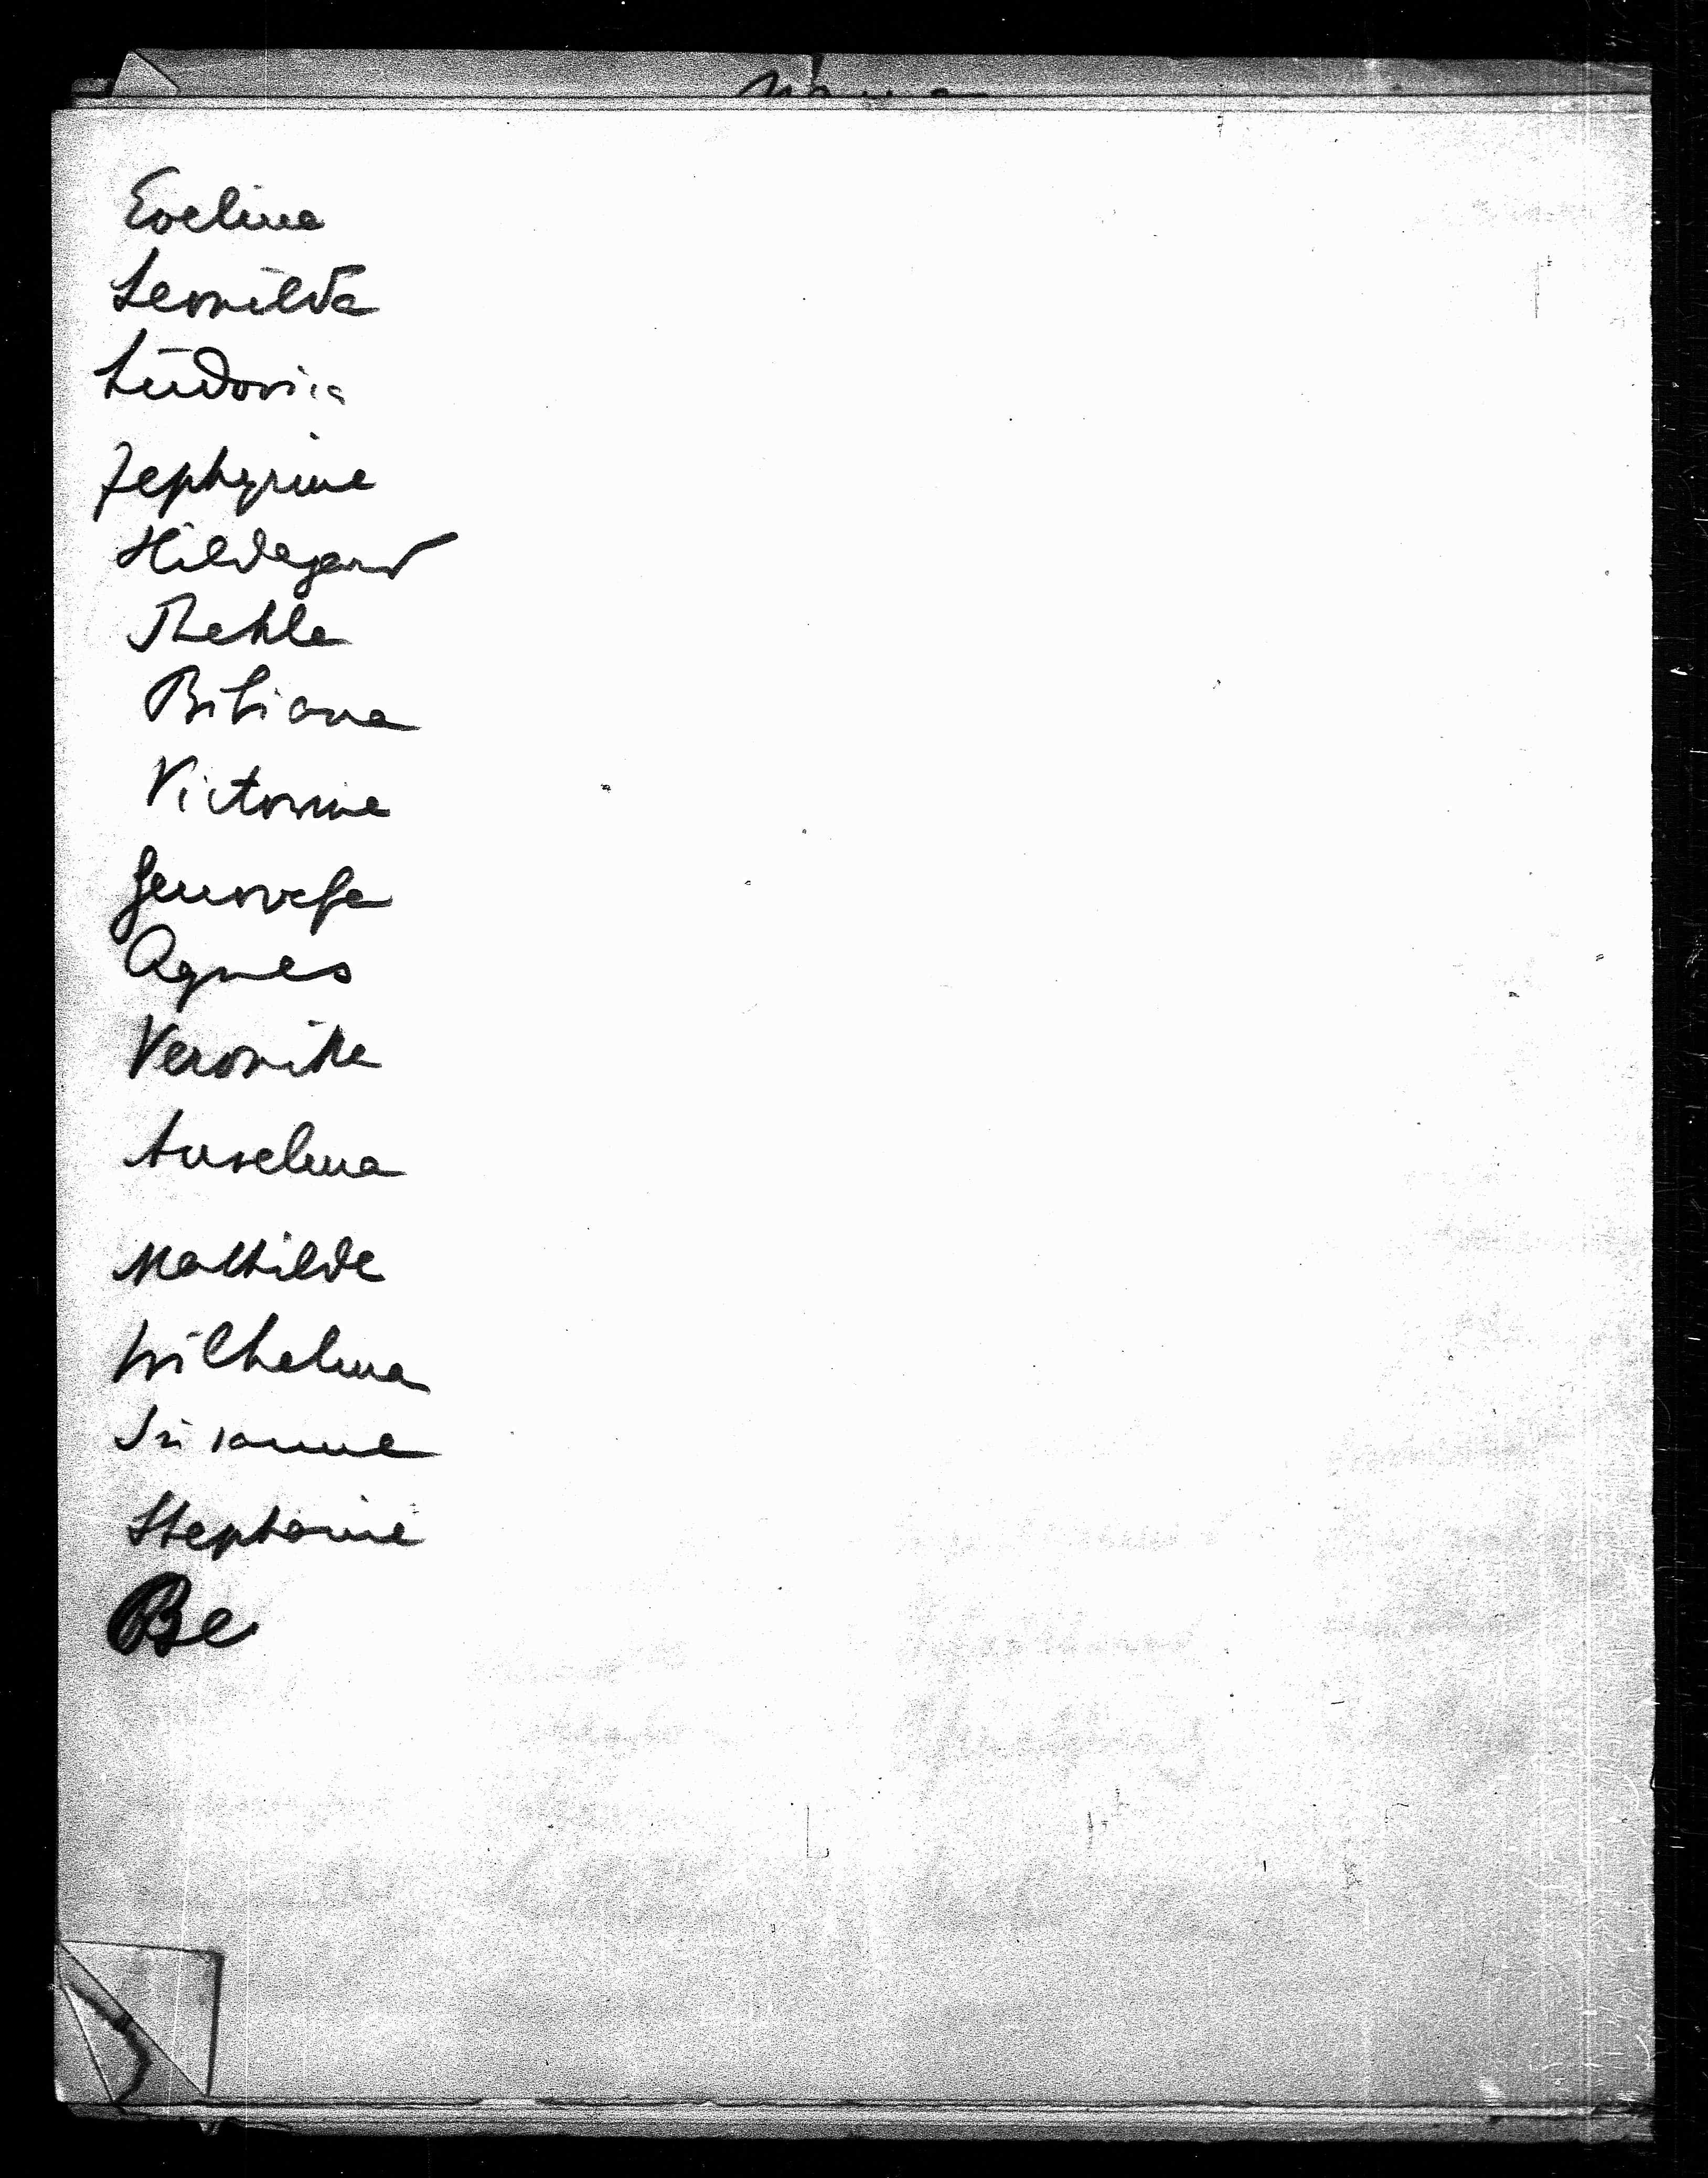 Evelina
Leonilda
Ludovica
Zephyrine
Hildegard
Thekla
Bibiana
Victorine
Genovefa
Agnes
Veronika
Anselma
Mathilde
Wilhelma
Susanne
Stephanie
Be